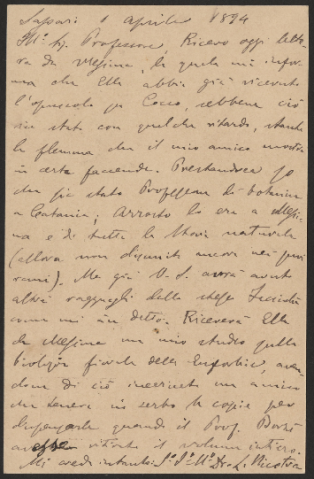 Sassari 1 Aprile 1894
Ill.º Sig. Professore, Ricevo oggi lette-
ra da Messina, la quale mi infor-
ma che Ella abbia già ricevuto
l'opuscolo pel Cocco, sebbene ciò
sia stato con qualche ritardo, stante
la flemma che il mio amico mostra
in certe faccende. Prestandrea
che sia stato Professore di botanica
a Catania; Arrosto lo era a Messi-
na e di tutta la Storia naturale
(allora non disgiunti ancora nei
rami). Ma già V. S. avrà avuto
altri ragguagli dallo stesso
come mi ha detto. Riceverà Ella
da Messina un mio studio sulla
biologia fiorale delle Euforbie, aven-
done di ciò incaricato un amico
che teneva in serbo le copie per
dispensarle quando il Prof. Borzì
avesse ritirato il volume intero.
Mi creda intanto: L. Nicotra